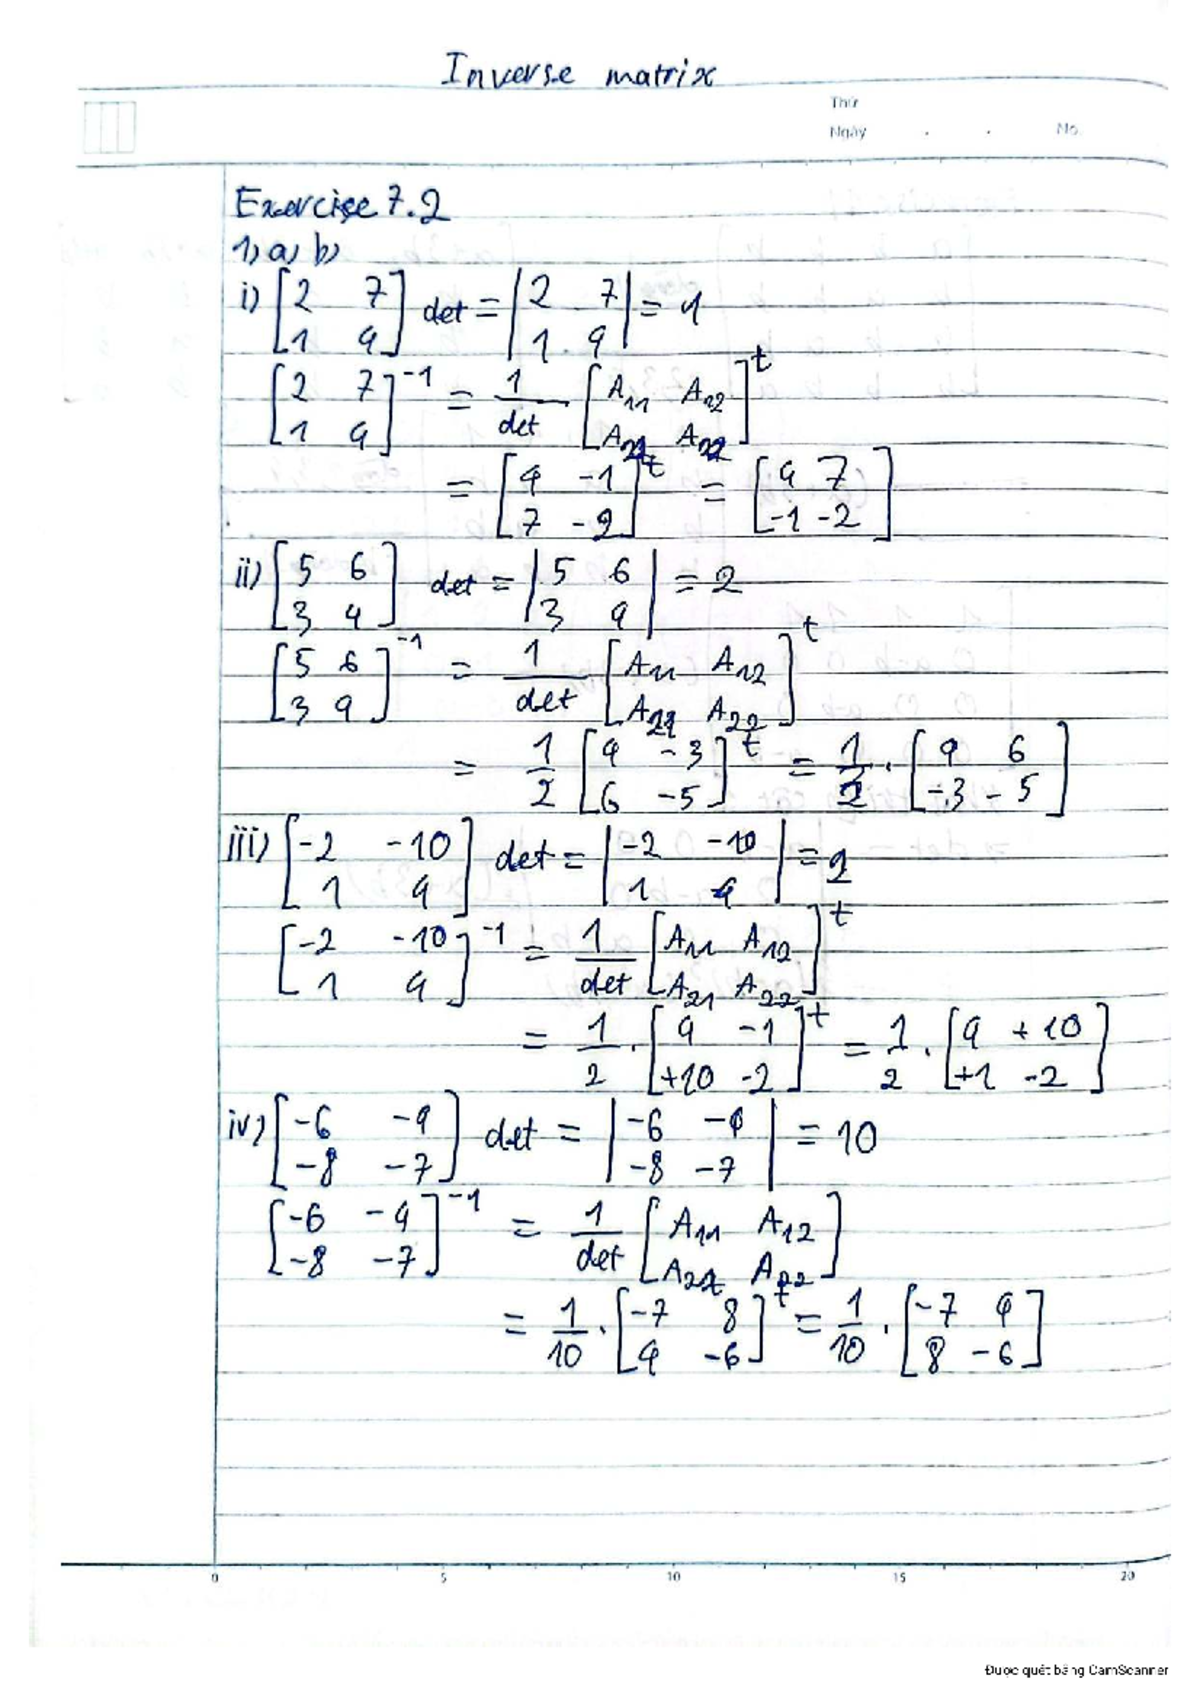 Inverse matrix
Thứ
Ngày . . No.
Exercise 7.2
1, a, b,
i) [2 7; 1 4] det = |2 7; 1 4| = 1
[2 7; 1 4]^-1 = 1/det [A11 A12; A21 A22]^t
= [4 -1; 7 -2]^t = [4 7; -1 -2]
ii) [5 6; 3 4] det = |5 6; 3 4| = 2
[5 6; 3 4]^-1 = 1/det [A11 A12; A21 A22]^t
= 1/2 [4 -3; 6 -5]^t = 1/2 . [4 6; -3 -5]
iii) [-2 -10; 1 4] det = |-2 -10; 1 4| = 2
[-2 -10; 1 4]^-1 = 1/det [A11 A12; A21 A22]^t
= 1/2 . [4 -1; +10 -2]^t = 1/2 . [4 +10; +1 -2]
iv) [-6 -4; -8 -7] det = |-6 -4; -8 -7| = 10
[-6 -4; -8 -7]^-1 = 1/det [A11 A12; A21 A22]
= 1/10 . [-7 8; 4 -6]^t = 1/10 . [-7 4; 8 -6]
0 5 10 15 20
Được quét bằng CamScanner